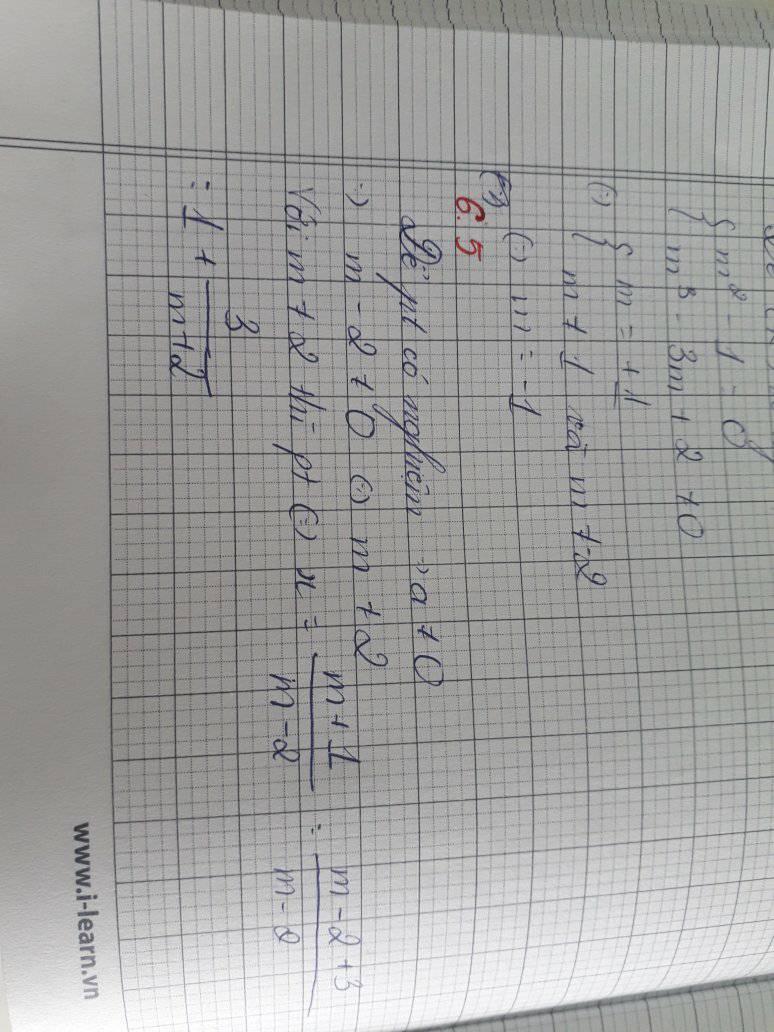 { m² - 1 = 0
{ m³ - 3m + 2 ≠ 0
(=) { m = ±1
m ≠ 1 và m ≠ -2
(=) m = -1
6.5
Để pt có nghiệm → a ≠ 0
=) m - 2 ≠ 0 (=) m ≠ 2
Với m ≠ 2 thì pt (=) x = (m + 1)/(m - 2) = (m - 2 + 3)/(m - 2)
= 1 + 3/(m + 2)
www.i-learn.vn